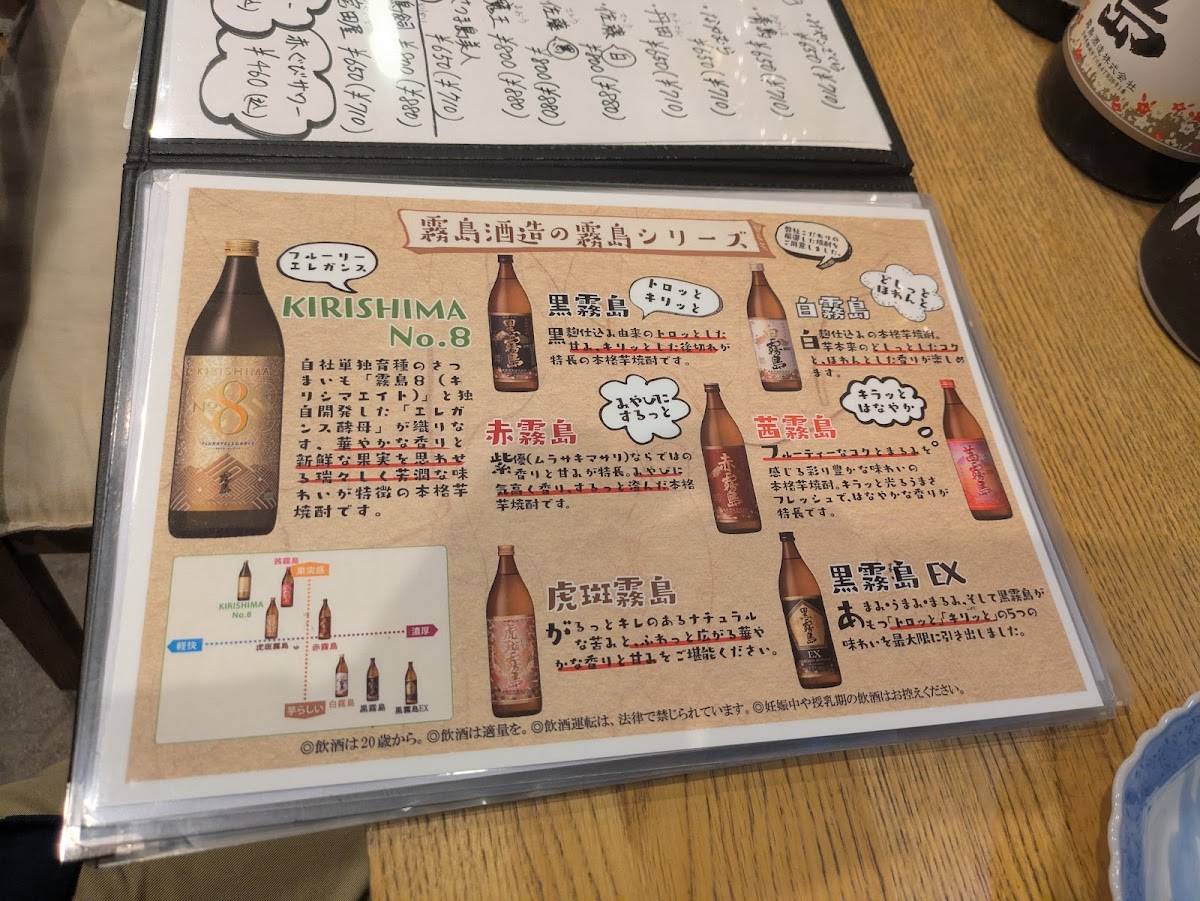 赤くだサワー
¥460(込)
¥650(¥710)
¥800(¥880)
魔王 ¥800(¥880)
佐藤 黒 ¥800(¥880)
佐藤 白 ¥800(¥880)
丹田 ¥650(¥710)
¥650(¥710)
¥650(¥710)
¥650(¥710)
霧島酒造の霧島シリーズ
弊社こだわりの
厳選した焼酎を
ご用意しました。
フルーリー
エレガンス
KIRISHIMA
No.8
自社単独育種のさつ
まいも「霧島8(キ
リシマエイト)」と独
自開発した「エレガ
ンス酵母」が織りな
す、華やかな香りと
新鮮な果実を思わせ
る瑞々しく芳潤な味
わいが特徴の本格芋
焼酎です。
KIRISHIMA
No 8
黒霧島
トロッと
キリッと
黒麹仕込み由来のトロッとした
甘み、キリッとした後切れが
特長の本格芋焼酎です。
黒霧島
白霧島
どしっと
ほわんと
白麹仕込の本格芋焼酎。
芋本来のどしっとしたコク
と、ほわんとした香りが楽しめ
ます。
白霧島
赤霧島
みやびに
するっと
紫優(ムラサキマサリ)ならではの
香りと甘みが特長。みやびに
気高く香り、するっと澄んだ本格
芋焼酎です。
赤霧島
茜霧島
キラッと
はなやか
フルーティーなコクとまるみを
感じる彩り豊かな味わいの
本格芋焼酎。キラッと光るうまさ
フレッシュで、はなやかな香りが
特長です。
茜霧島
虎斑霧島
がるっとキレのあるナチュラル
な苦みと、ふわっと広がる華や
かな香りと甘みをご堪能ください。
虎斑霧島
黒霧島 EX
あまみ・うまみ・まるみ、そして黒霧島が
もつ「トロッと」「キリッと」の5つの
味わいを最大限に引き出しました。
黒霧島
EX
茜霧島
果実感
KIRISHIMA
No.8
軽快
濃厚
虎斑霧島
赤霧島
芋らしい
白霧島
黒霧島
黒霧島EX
◎飲酒は20歳から。◎飲酒は適量を。◎飲酒運転は、法律で禁じられています。◎妊娠中や授乳期の飲酒はお控えください。
酒造株式会社